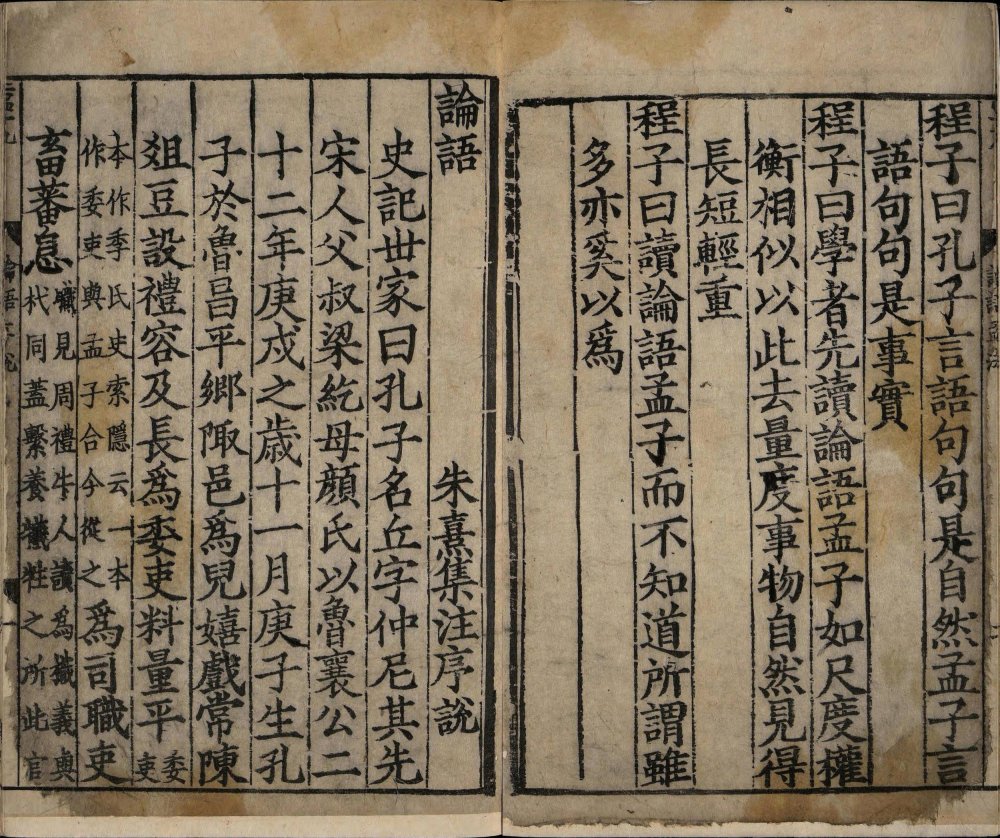 程子曰孔子言語句句是自然孟子言
語句句是事實
程子曰學者先讀論語孟子如尺度權
衡相似以此去量度事物自然見得
長短輕重
程子曰讀論語孟子而不知道所謂雖
多亦奚以爲
論語
朱熹集注序說
史記世家曰孔子名丘字仲尼其先
宋人父叔梁紇母顔氏以魯襄公二
十二年庚戍之歲十一月庚子生孔
子於魯昌平鄉陬邑爲兒嬉戲常陳
俎豆設禮容及長爲委吏料量平委
吏
本作季氏史索隱云一本
作委吏與孟子合今從之
爲司職吏
畜蕃息
職見周禮牛人讀爲樴義與
杙同蓋繫養犧牲之所此官